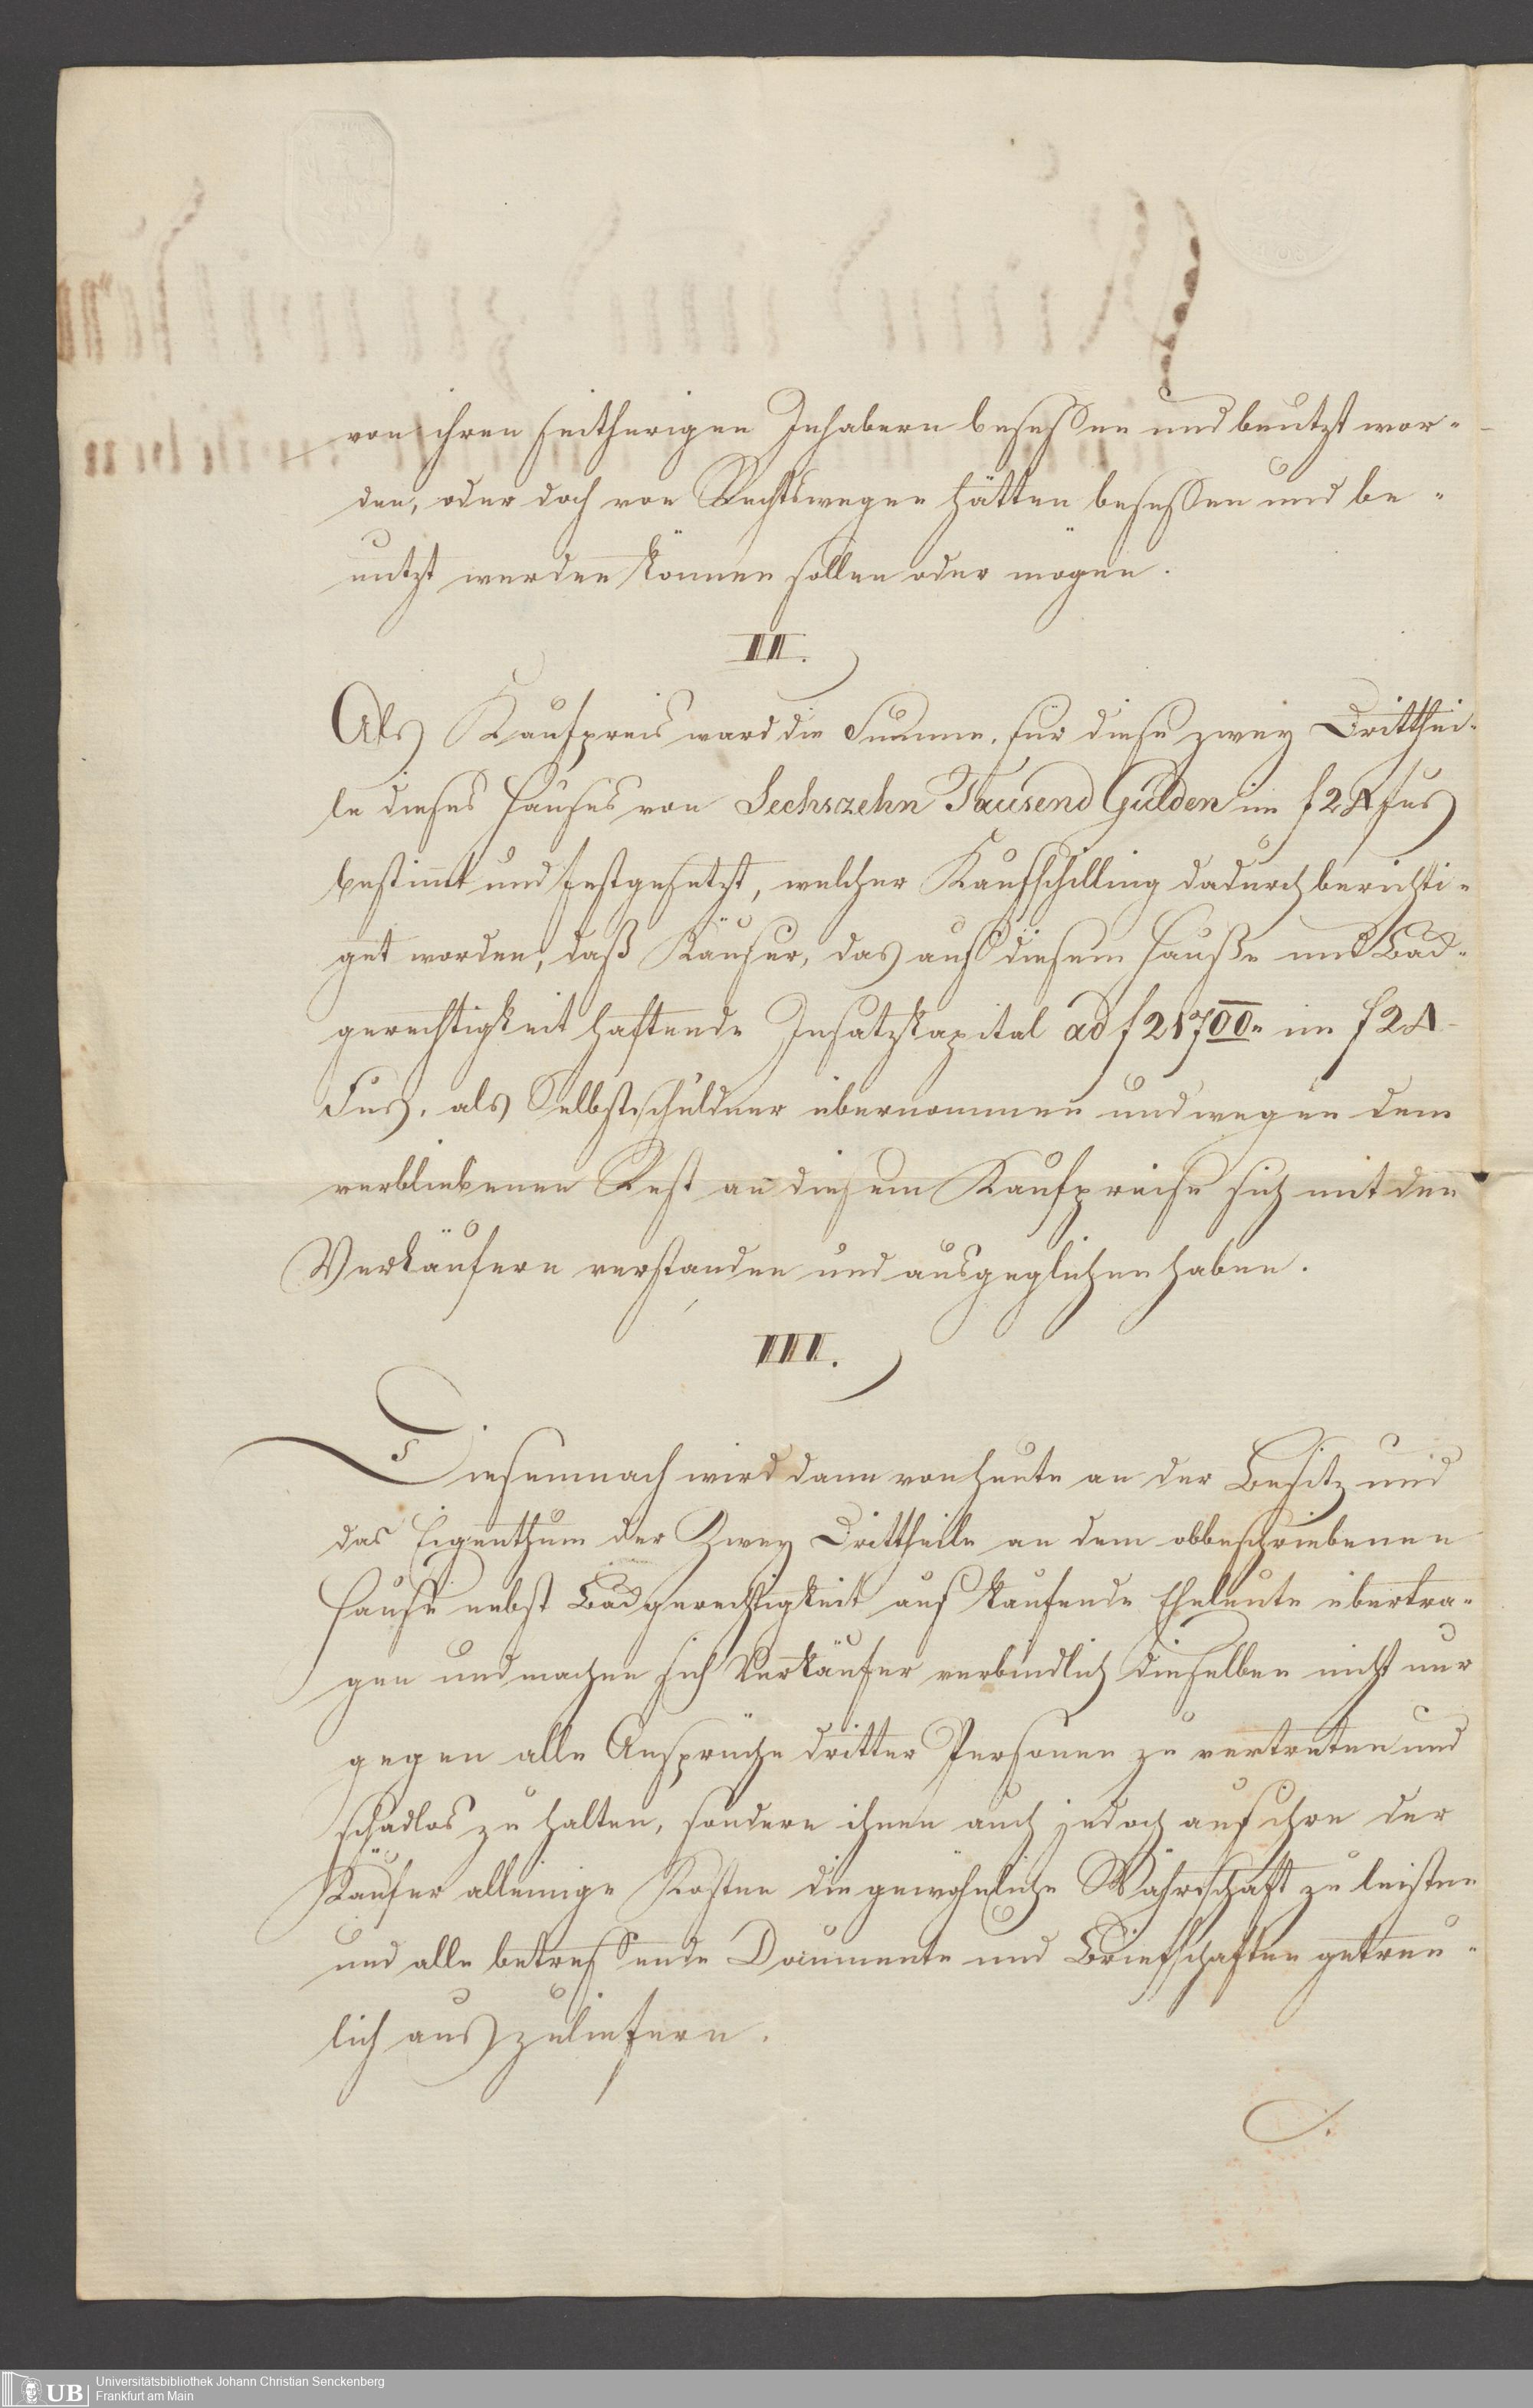 von ihren seitherigen Inhabern besessen und benutzt wor-
den, oder doch von Rechtswegen hätten besessen und be-
nutzt werden können sollen oder mögen.
II.
Als Kaufpreis ward die Summe, für diese zwey Dritthei-
le dieses Hauses von Sechszehn Tausend Gulden im f 24 Fus
bestimmt und festgesetzt, welcher Kaufschilling dadurch berichti-
get worden, daß Käufer, das auf diesem Hauße und Bad-
gerechtigkeit haftende Insatzkapital ad f 21700.- im f 24
Fus, als Selbstschuldner übernommen und wegen dem
verbliebenen Rest an diesem Kaufpreise sich mit den
Verkäufern verstanden und ausgeglichen haben.
III.
Diesemnach wird dann von heute an der Besitz und
das Eigenthum der Zwey Drittheile an dem obbeschriebenen
Hause nebst Badgerechtigkeit auf kaufende Eheleute übertra-
gen und machen sich Verkäufer verbindlich dieselben nicht nur
gegen alle Ansprüche dritter Personen zu vertreten und
schadlos zu halten, sondern ihnen auch jedoch auf ihre der
Käufer alleinige Kosten die gewöhnliche Währschaft zu leisten
und alle betreffende Documente und Briefschaften getreu-
lich auszuliefern.
UB
Universitätsbibliothek Johann Christian Senckenberg
Frankfurt am Main